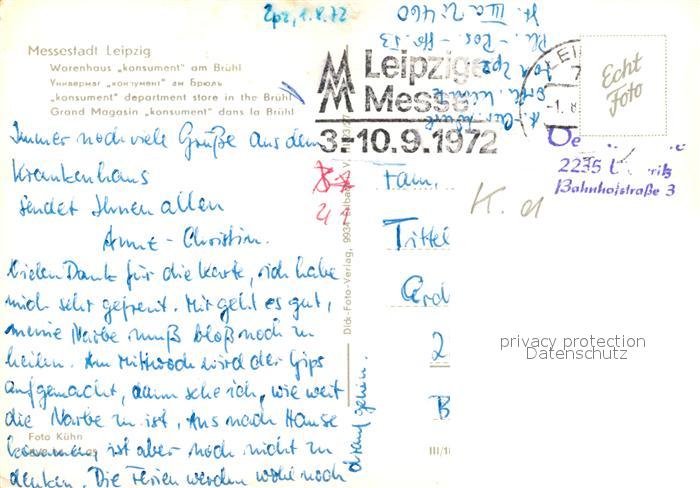 Lpz, 1.8.72
Messestadt Leipzig
Warenhaus „konsument“ am Brühl
Универмаг „консумент“ ам Брюль
„konsument“ department store in the Brühl
Grand Magasin „konsument“ dans la Brühl
MM Leipziger
Messe
3.-10.9.1972
Echt
Foto
2235
Bahnhofstraße 3
Immer noch viele Grüße aus dem
Krankenhaus
sendet Ihnen allen
Anne-Christin.
Vielen Dank für die Karte, ich habe
mich sehr gefreut. Mir geht es gut,
meine Narbe muß bloß noch zu
heilen. Am Mittwoch wird der Gips
aufgemacht, dann sehe ich, wie weit
die Narbe zu ist. Ans nach Hause
kommen ist aber noch nicht zu
denken. Die Ferien werden wohl noch
drauf gehen.
Fam.
Tittel
K. d
privacy protection
Datenschutz
Dick-Foto-Verlag, 9934
Foto Kühn
III/18